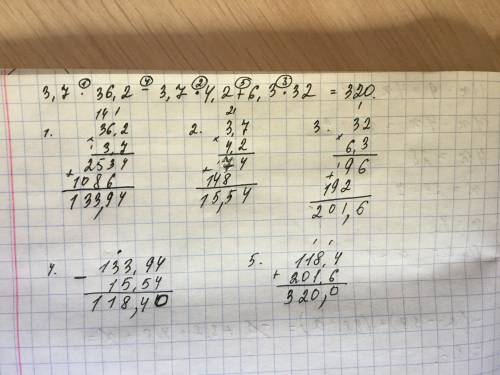 3,7 · 36,2 - 3,7 · 4,2 + 6,3 · 32 = 320.
1 4 2 5 3
14 1
1. 36,2
× 3,7
2534
+ 1086
133,94
2
2. 3,7
× 4,2
74
+ 148
15,54
1
3. 32
× 6,3
96
+ 192
201,6
4. 133,94
- 15,54
118,40
1 1
5. 118,4
+ 201,6
320,0